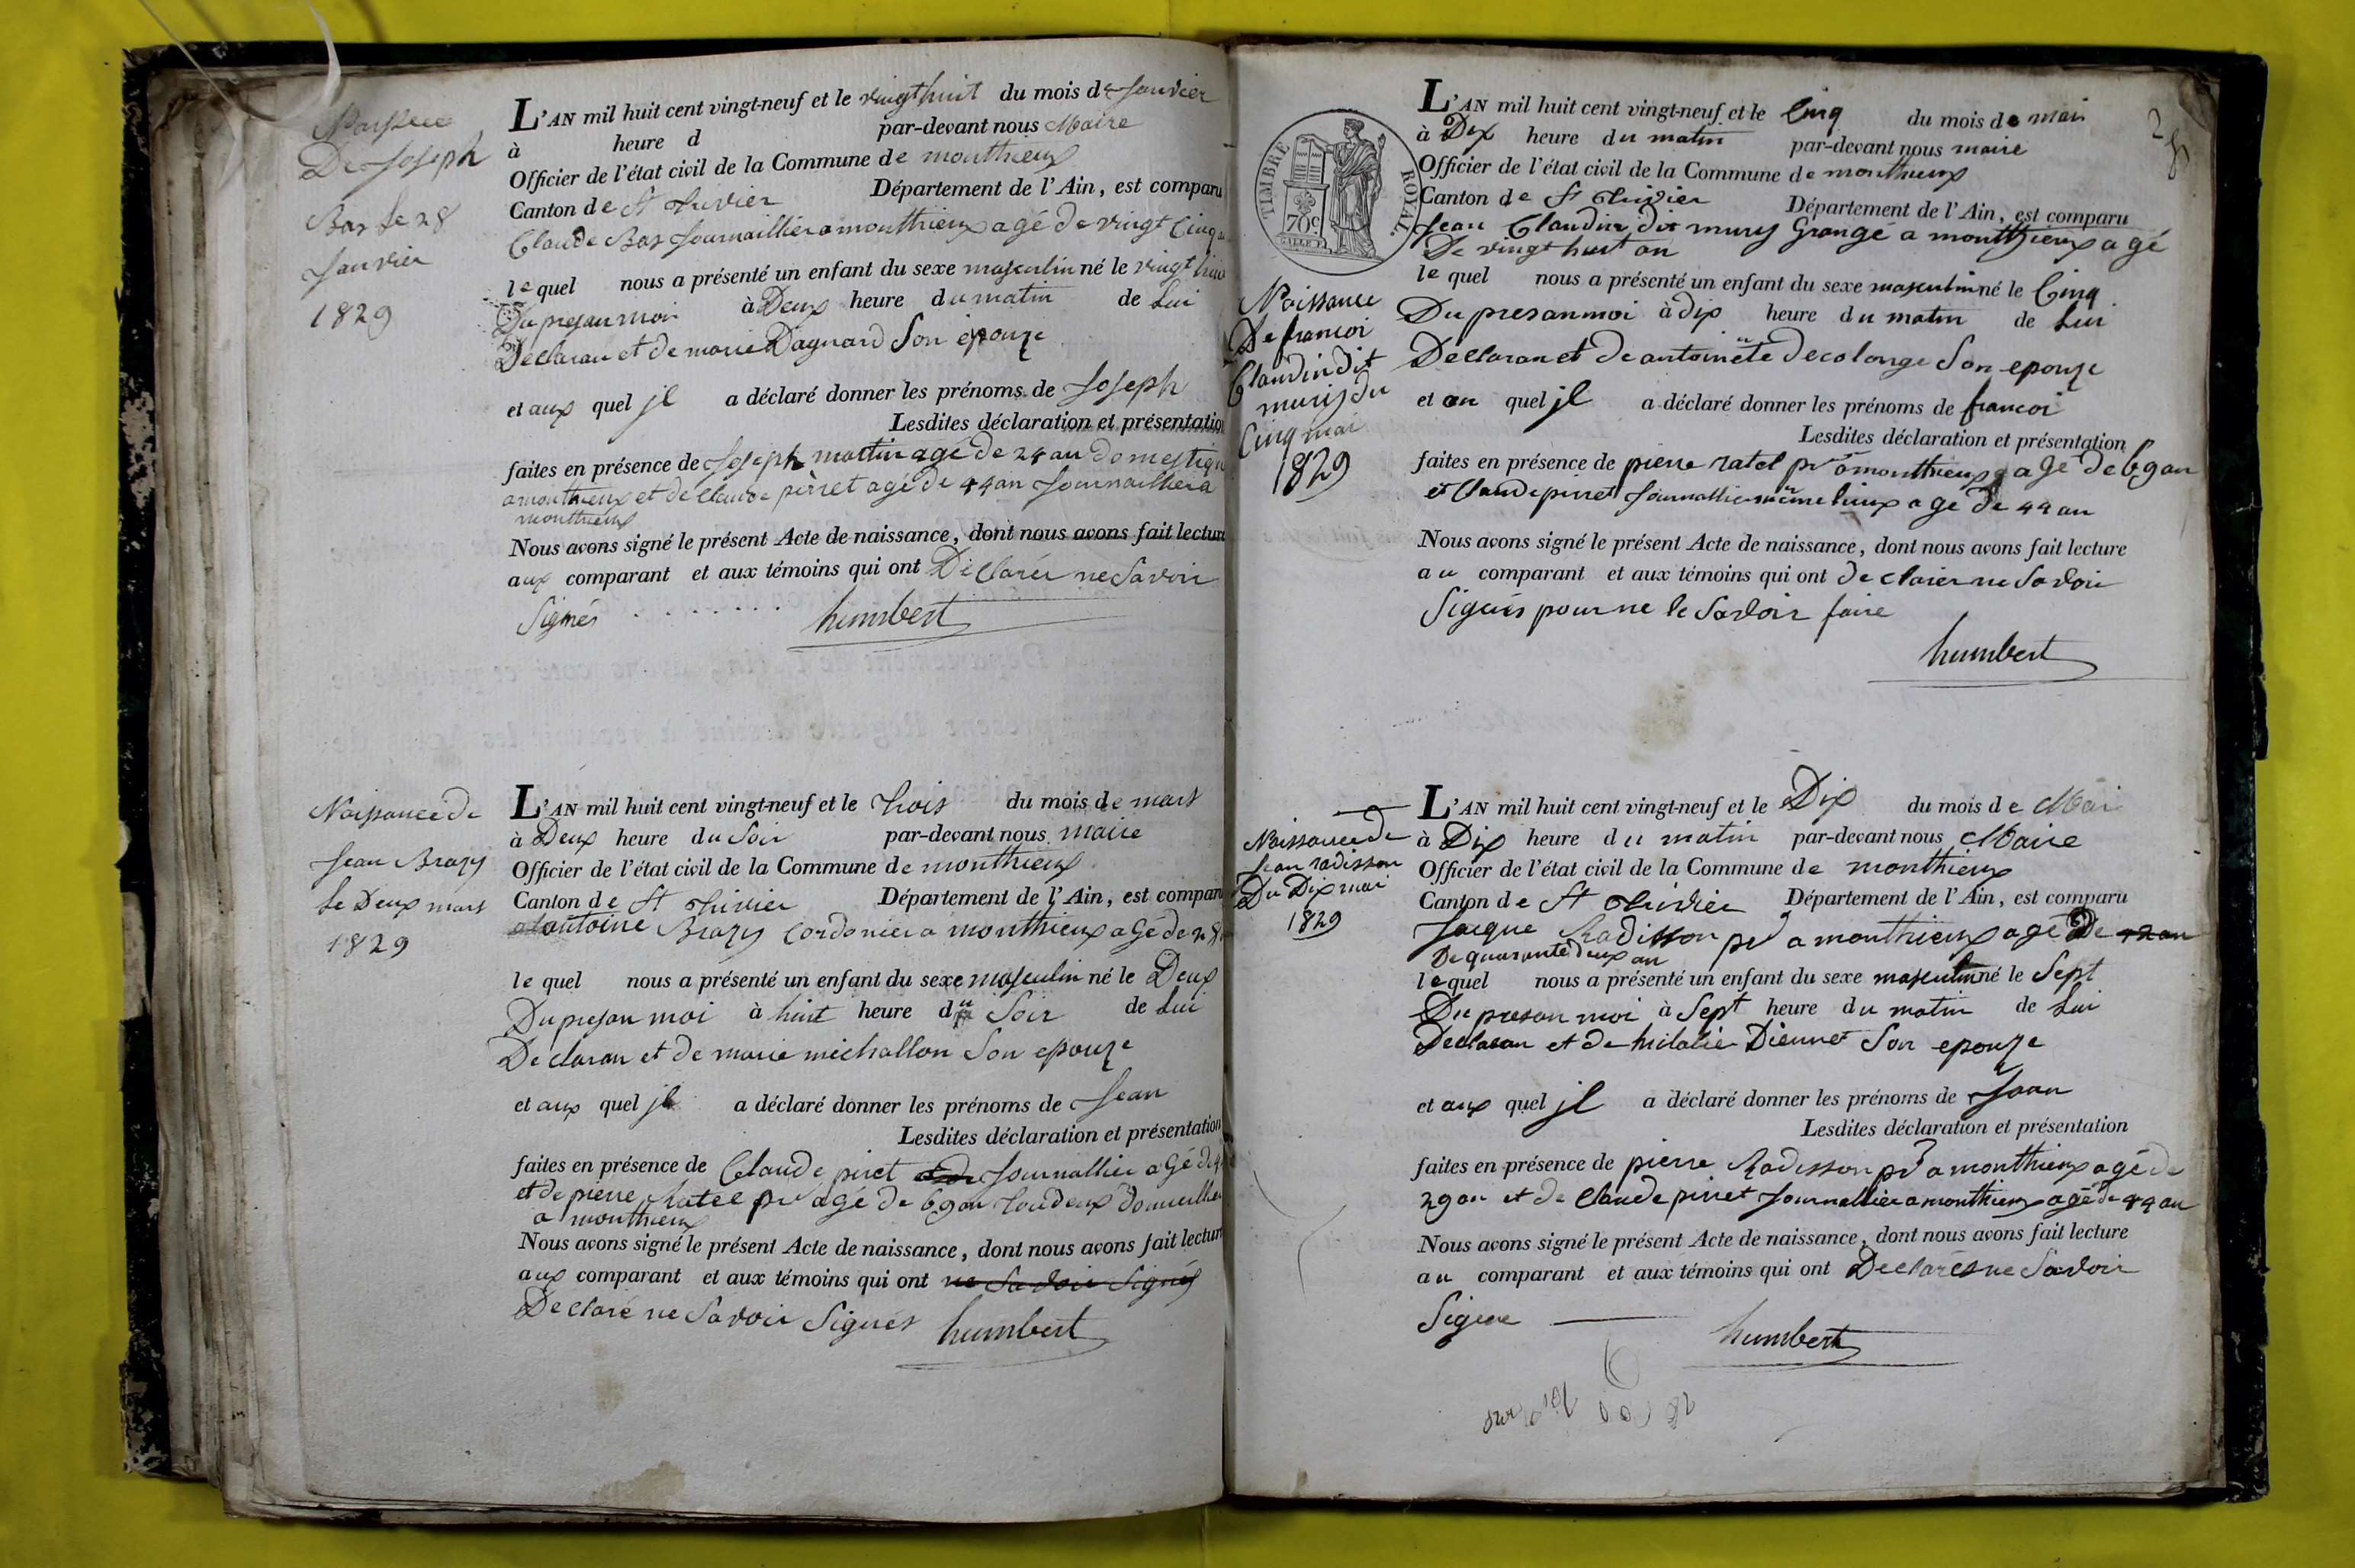 Naissance
De Joseph
Bas le 28
Janvier
1829
L'AN mil huit cent vingt-neuf et le vingt huit du mois de Janvier
à heure d par-devant nous Maire
Officier de l'état civil de la Commune de monthieux
Canton de St trivier Département de l'Ain, est comparu
Claude Bas Journaillier a monthieux agé de vingt Cinq
le quel nous a présenté un enfant du sexe masculin né le vingt huit
Du presan moi à Deux heure du matin de Lui
Declaran et de marie Dagnard Son epouze
et aux quel jl a déclaré donner les prénoms de Joseph
Lesdites déclaration et présentation
faites en présence de Joseph martin agé de 24 an domestiq
a monthieux et de claude pirret agé de 44 an Journaillier a
monthieux
Nous avons signé le présent Acte de naissance, dont nous avons fait lecture
aux comparant et aux témoins qui ont Déclarér ne Savoir
Signés humbert
Naissance de
Jean Brazy
Le Deux mars
1829
L'AN mil huit cent vingt-neuf et le trois du mois de mars
à Deux heure du Soir par-devant nous maire
Officier de l'état civil de la Commune de monthieux
Canton de St trivier Département de l'Ain, est comparu
antoine Brazy Cordonier a monthieux agé de 28
le quel nous a présenté un enfant du sexe masculin né le Deux
Du presan moi à huit heure du Soir de Lui
Declaran et de marie michallon Son epouze
et aux quel jl a déclaré donner les prénoms de Jean
Lesdites déclaration et présentation
faites en présence de Claude piret Journallier agé de
et de pierre ratel pr agé de 69 an tou deux domicillier
a monthieux
Nous avons signé le présent Acte de naissance, dont nous avons fait lecture
aux comparant et aux témoins qui ont ne Savoir Signés
Declaré ne Savoir Signés humbert
28
TIMBRE ROYAL
70c
Naissance
De francoi
Claudin dit
mury du
Cinq mai
1829
L'AN mil huit cent vingt-neuf et le Cinq du mois de mai
à Dix heure du matin par-devant nous maire
Officier de l'état civil de la Commune de monthieux
Canton de St trivier Département de l'Ain, est comparu
Jean Claudin dit mury Grangé a monthieux agé
De vingt huit an
le quel nous a présenté un enfant du sexe masculin né le Cinq
Du presan moi à dix heure du matin de Lui
Declaran et de antoinete decolonge Son epouze
et au quel jl a déclaré donner les prénoms de francoi
Lesdites déclaration et présentation
faites en présence de pierre ratel pr a monthieux agé de 69 an
et Claude pirret Journallier même lieux agé de 44 an
Nous avons signé le présent Acte de naissance, dont nous avons fait lecture
au comparant et aux témoins qui ont declarer ne Savoir
Signés pour ne le Savoir faire
humbert
Naissance de
Jean radisson
Du Dix mai
1829
L'AN mil huit cent vingt-neuf et le Dix du mois de Mai
à Dix heure du matin par-devant nous Maire
Officier de l'état civil de la Commune de monthieux
Canton de St trivier Département de l'Ain, est comparu
Jacque Radisson pr a monthieux agé De 42 an
De quarante deux an
le quel nous a présenté un enfant du sexe masculin né le Sept
Du presan moi à Sept heure du matin de Lui
Declaran et de hilalie Diennet Son epouze
et aux quel jl a déclaré donner les prénoms de Jean
Lesdites déclaration et présentation
faites en présence de pierre Radisson pr a monthieux agé de
29 an et de Claude pirret Journallier a monthieux agé de 44 an
Nous avons signé le présent Acte de naissance, dont nous avons fait lecture
au comparant et aux témoins qui ont Declarés ne Savoir
Signe humbert